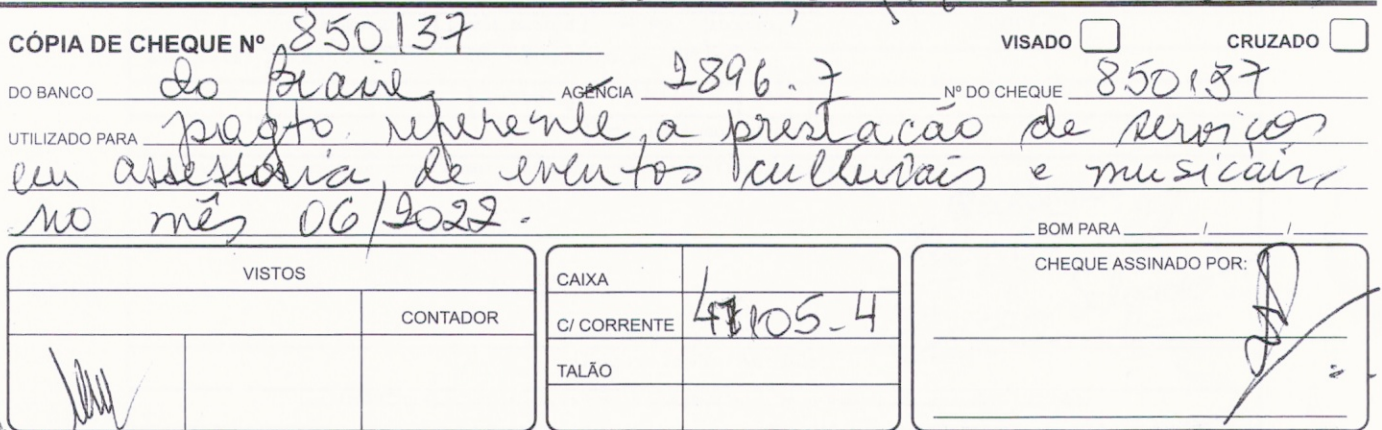 CÓPIA DE CHEQUE Nº 850137 VISADO CRUZADO
DO BANCO do Brasil AGÊNCIA 2896-7 Nº DO CHEQUE 850137
UTILIZADO PARA pagto. referente a prestação de serviços
em assessoria de eventos culturais e musicais
no mês 06/2022.
BOM PARA / /
VISTOS
CONTADOR
CAIXA
C/ CORRENTE
TALÃO
CHEQUE ASSINADO POR: